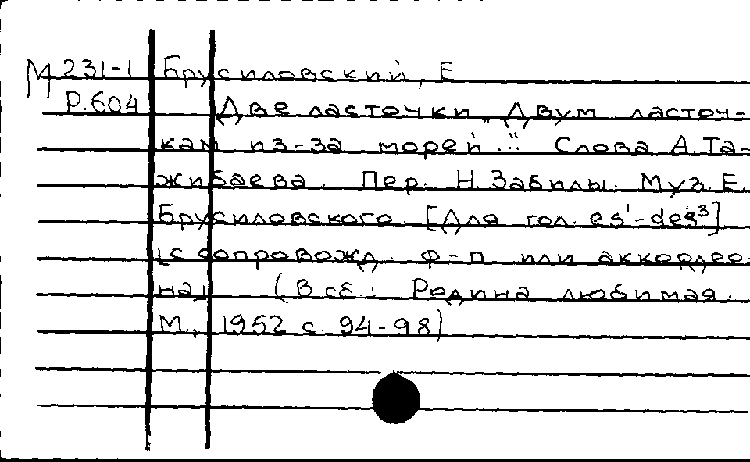 М 231-1 Брусиловский, Е
Р.604 Две ласточки. „Двум ласточ-
кам из-за морей..." Слова А. Та-
жибаева. Пер. Н. Забилы. Муз. Е.
Брусиловского. [Для гол. es¹-des³]
[с сопровожд. ф-п или аккордео-
на] (В сб.: Родина любимая.
М., 1952 с 94-98)